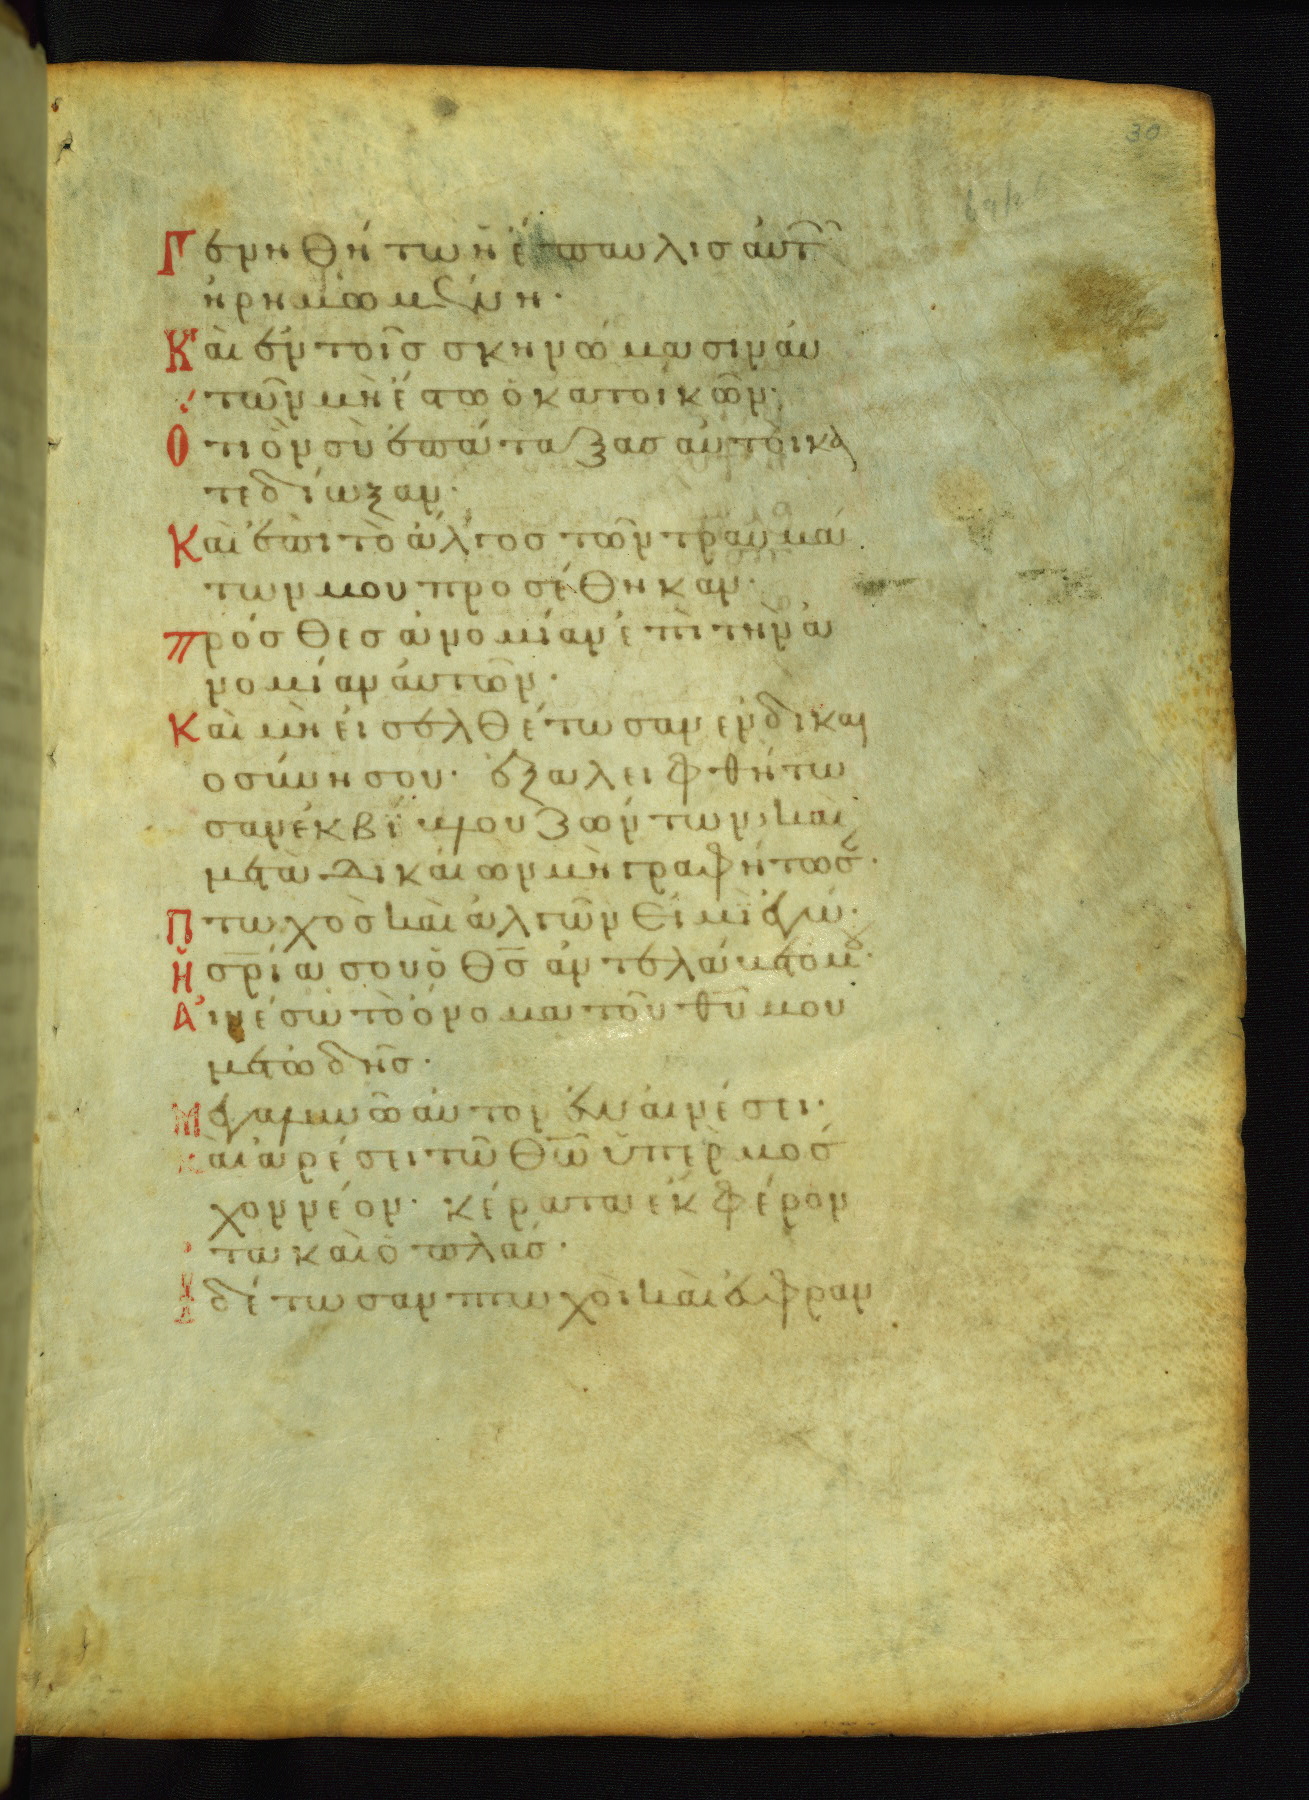 30
Γενηθήτω ἡ ἔπαυλις αὐτῶ
ἠρημωμένη·
Καὶ ἐν τοῖς σκηνώμασιν αὐ
τῶν μὴ ἔστω ὁ κατοικῶν·
Ὅτι ὃν σὺ ἐπάταξας αὐτοὶ κα
τεδίωξαν·
Καὶ ἐπὶ τὸ ἄλγος τῶν τραυμά
των μου προσέθηκαν·
Πρόσθες ἀνομίαν ἐπὶ τὴν ἀ
νομίαν αὐτῶν·
Καὶ μὴ εἰσελθέτωσαν ἐν δικαι
οσύνη σου· ἐξαλειφθήτω
σαν ἐκ βίβλου ζώντων, καὶ
μετὰ δικαίων μὴ γραφήτωσ·
Πτωχὸς καὶ ἀλγῶν εἰμὶ ἐγώ·
Ἡ σρία σου ὁ θς ἀντελάβετό μου·
Αἰνέσω τὸ ὄνομα τοῦ θυ μου
μετ ὠδῆς·
Μεγαλυνῶ αὐτὸν ἐν αἰνέσει·
Καὶ ἀρέσει τῶ θω ὑπὲρ μόσ
χον νέον· κέρατα ἐκφέρον
τα καὶ ὁπλάς·
Ἰδέτωσαν πτωχοὶ καὶ εὐφραν